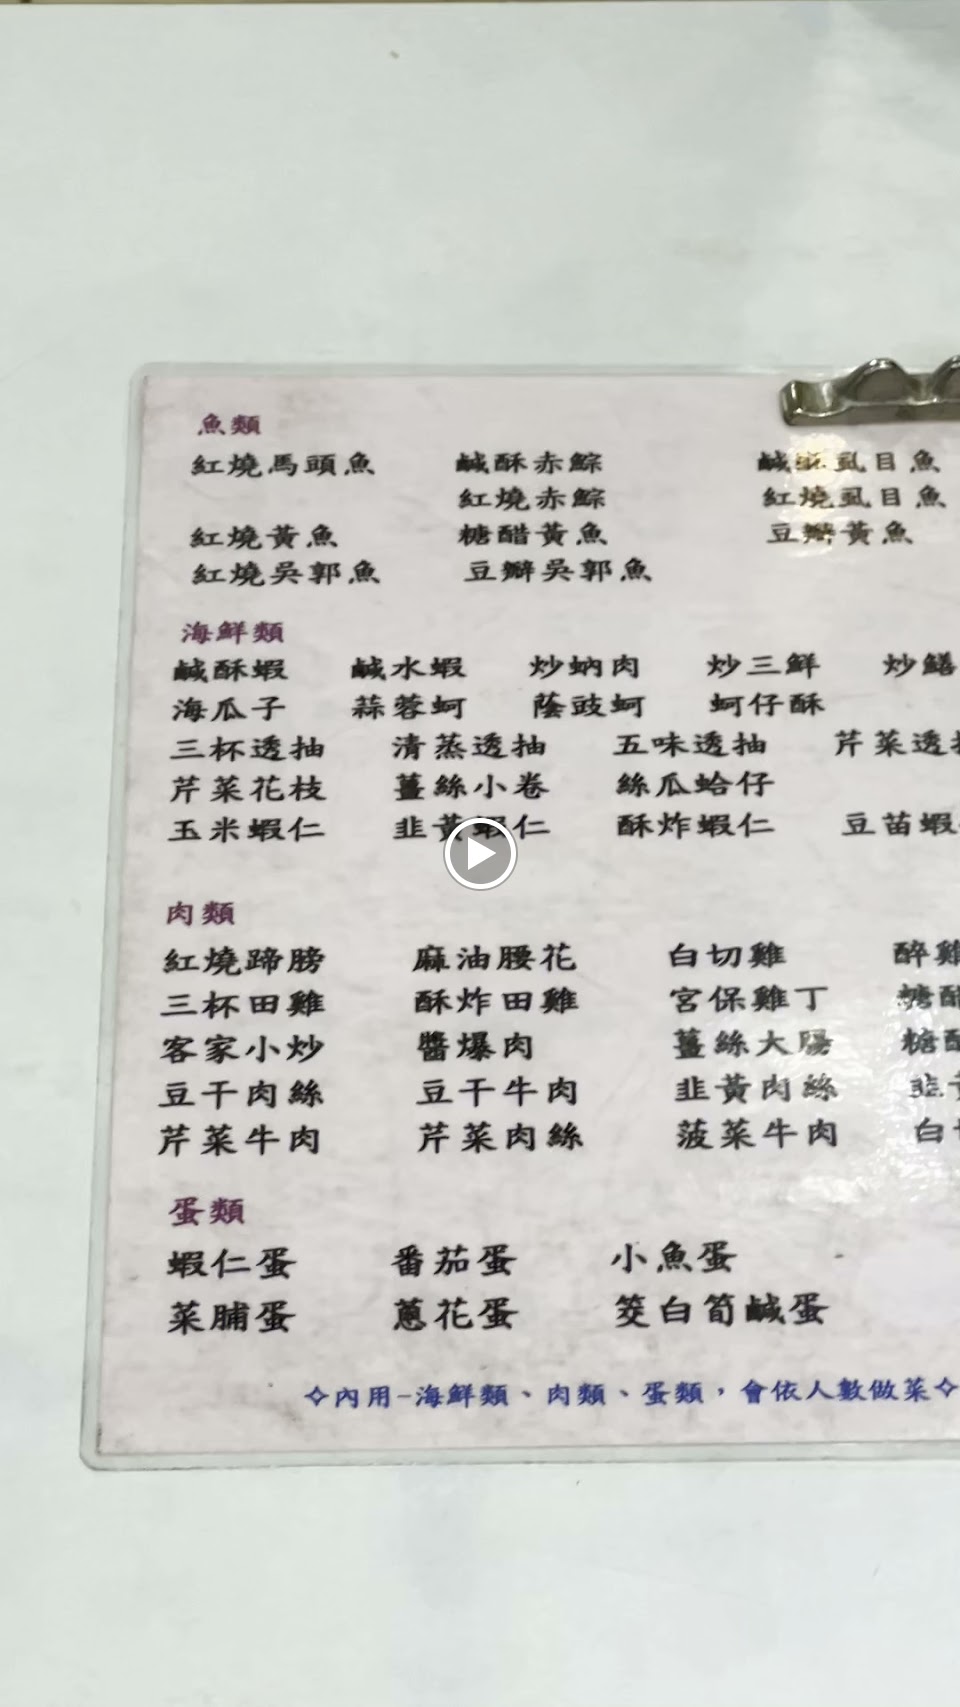 魚類
紅燒馬頭魚 鹹酥赤鯮 鹹酥虱目魚
紅燒赤鯮 紅燒虱目魚
紅燒黃魚 糖醋黃魚 豆瓣黃魚
紅燒吳郭魚 豆瓣吳郭魚
海鮮類
鹹酥蝦 鹹水蝦 炒蚋肉 炒三鮮 炒鱔
海瓜子 蒜蓉蚵 蔭豉蚵 蚵仔酥
三杯透抽 清蒸透抽 五味透抽 芹菜透抽
芹菜花枝 薑絲小卷 絲瓜蛤仔
玉米蝦仁 韭黃蝦仁 酥炸蝦仁 豆苗蝦
肉類
紅燒蹄膀 麻油腰花 白切雞 醉雞
三杯田雞 酥炸田雞 宮保雞丁 糖醋
客家小炒 醬爆肉 薑絲大腸 糖醋
豆干肉絲 豆干牛肉 韭黃肉絲 韭
芹菜牛肉 芹菜肉絲 菠菜牛肉 白
蛋類
蝦仁蛋 番茄蛋 小魚蛋
菜脯蛋 蔥花蛋 筊白筍鹹蛋
✧內用-海鮮類、肉類、蛋類，會依人數做菜✧